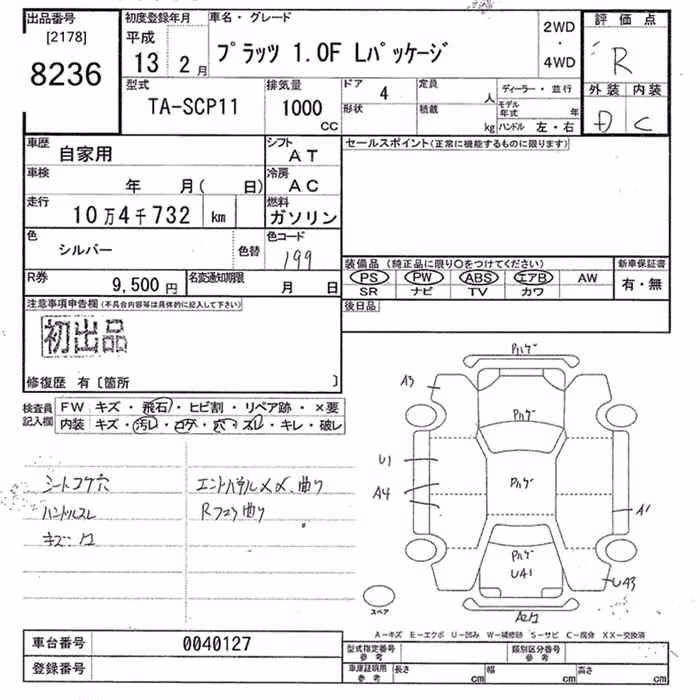 出品番号 初度登録年月 車名・グレード 2WD ・ 4WD 評価点
[2178] 平成
8236 13 2月 プラッツ 1.0F Lパッケージ R
型式 排気量 ドア 4 定員 人 ディーラー・並行 外装 内装
TA-SCP11 1000 CC 形状 積載 kg モデル年式 年 D C
ハンドル 左・右
車歴 自家用 シフト AT セールスポイント(正常に機能するものに限ります)
車検 年 月( 日) 冷房 AC
走行 10万4千732 km 燃料 ガソリン
色 シルバー 色替 色コード 199
装備品 (純正品に限り○をつけてください) 新車保証書
R券 9,500円 名変通知期限 月 日 PS PW ABS エアB AW 有・無
SR ナビ TV カワ
注意事項申告欄(不具合内容等は具体的に記入して下さい) 後日品
初出品
修復歴 有〔箇所 〕
検査員記入欄 FW キズ・飛石・ヒビ割・リペア跡・×要
内装 キズ・汚レ・コゲ・穴・スレ・キレ・破レ
シートコゲ穴
ハンドルスレ
エンドパネル〆〆、曲り
Rフロア曲り
ハゲ
A3
ハゲ
U1
ハゲ
A4
A1
ハゲ
UA1
UA3
スペア
A-キズ E-エクボ U-凹み W-補修跡 S-サビ C-腐食 XX-交換済
車台番号 0040127 型式指定番号 参考 類別区分番号 参考
登録番号 車庫証明用 参考 長さ cm 幅 cm 高さ cm